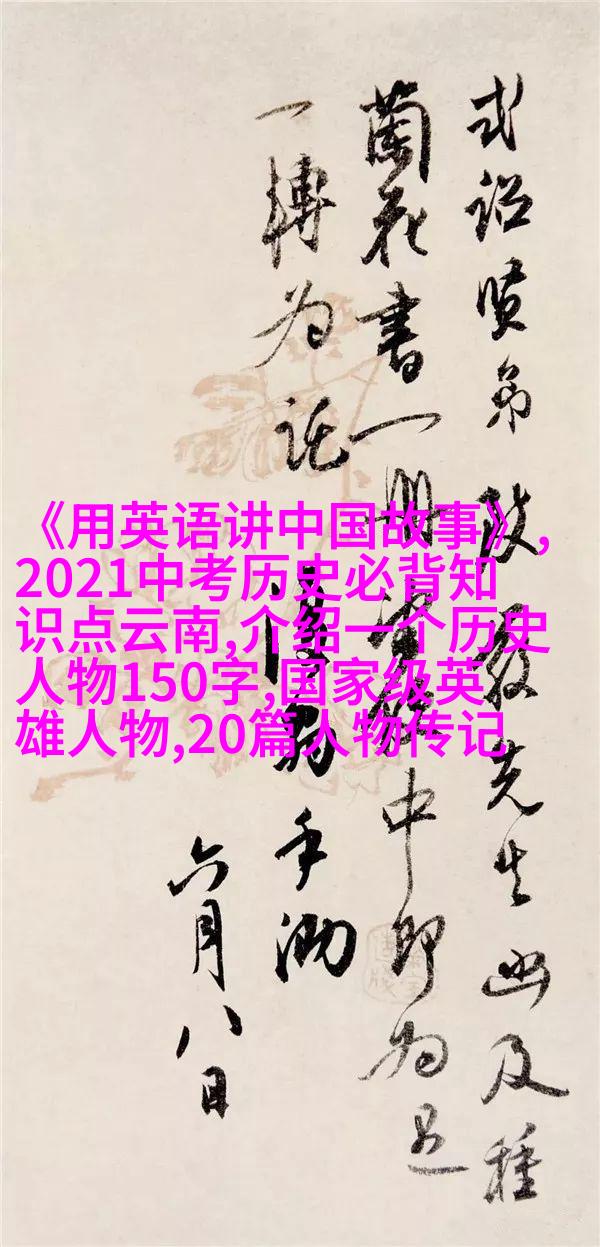 式詔賢弟先生函及種
蘭花書一冊中即为
一轉为託
手泐
六月八日
《用英语讲中国故事》,
2021中考历史必背知
识点云南,介绍一个历史
人物150字,国家级英
雄人物,20篇人物传记